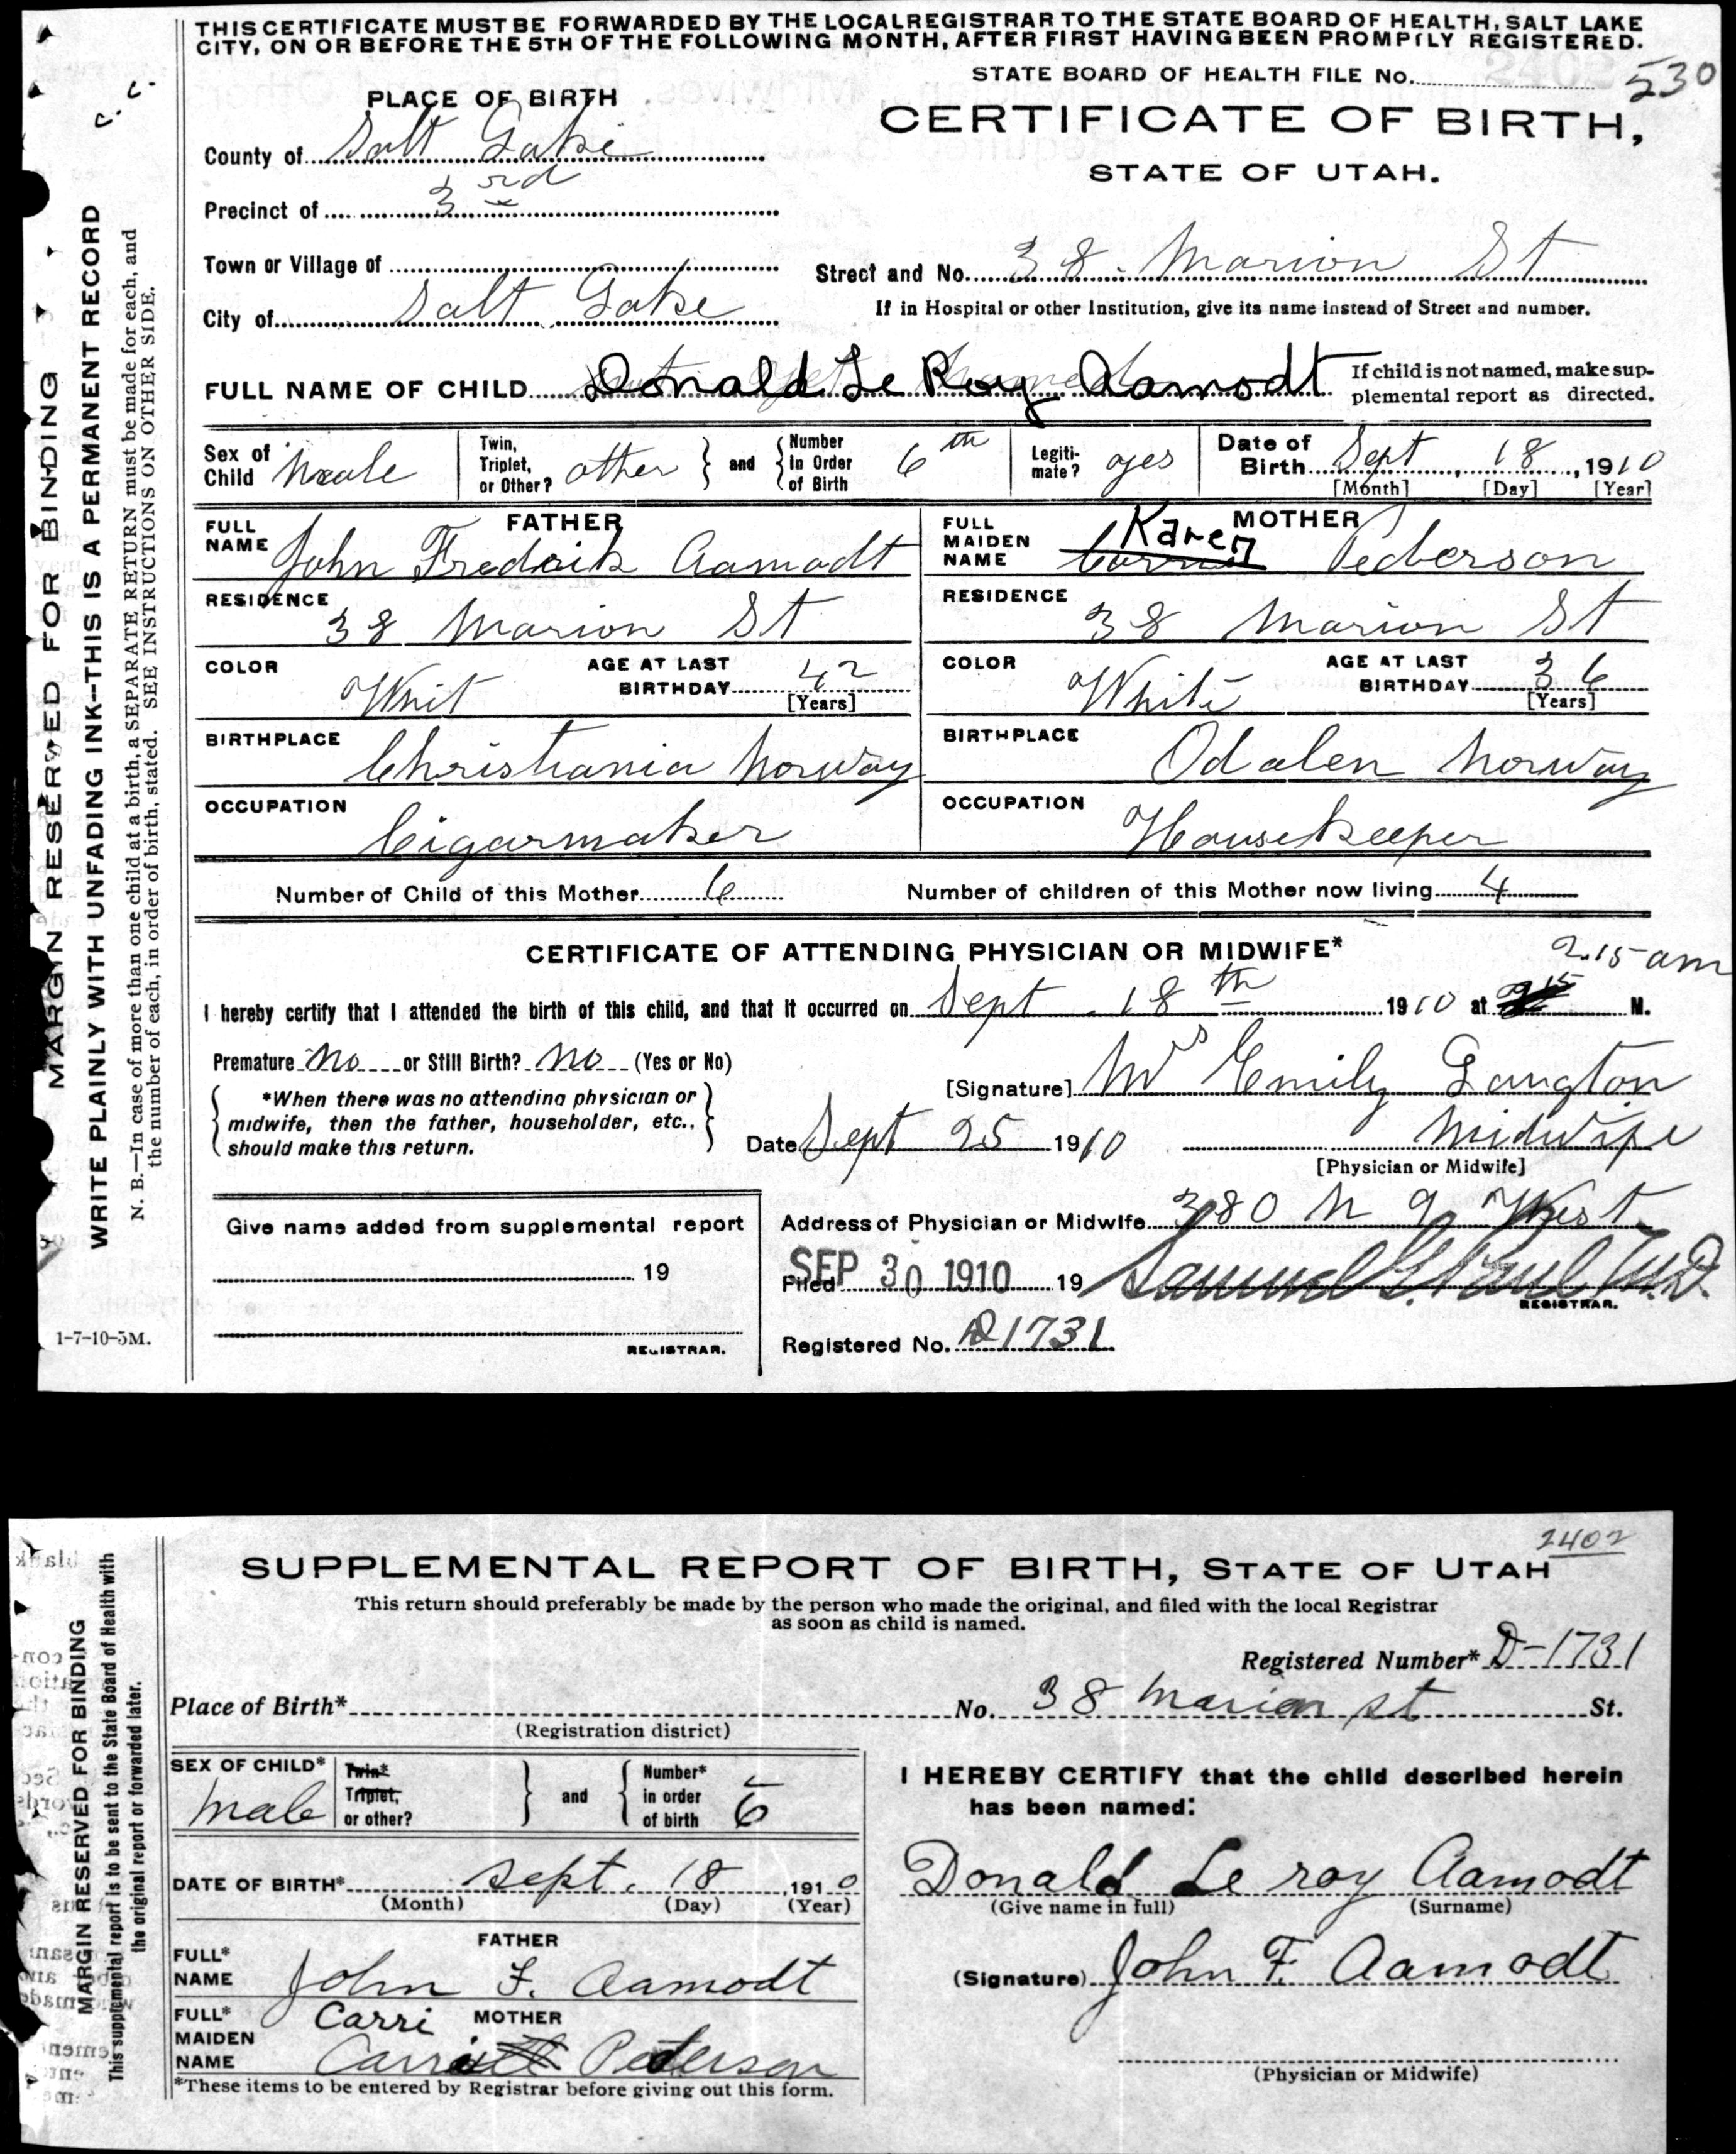 THIS CERTIFICATE MUST BE FORWARDED BY THE LOCAL REGISTRAR TO THE STATE BOARD OF HEALTH, SALT LAKE
CITY, ON OR BEFORE THE 5TH OF THE FOLLOWING MONTH, AFTER FIRST HAVING BEEN PROMPTLY REGISTERED.
STATE BOARD OF HEALTH FILE No. 530
C. C.
PLACE OF BIRTH
CERTIFICATE OF BIRTH,
STATE OF UTAH.
County of Salt Lake
Precinct of 3rd
Town or Village of
Street and No. 38. Marion St
If in Hospital or other Institution, give its name instead of Street and number.
City of Salt Lake
FULL NAME OF CHILD Donald Le Roy Aamodt
If child is not named, make sup-
plemental report as directed.
Sex of Child Male
Twin, Triplet, or Other? other and Number in Order of Birth 6th
Legiti-mate? yes
Date of Birth Sept, 18, 1910
[Month] [Day] [Year]
FATHER
FULL NAME John Fredrik Aamodt
MOTHER
FULL MAIDEN NAME Karen Pederson
RESIDENCE 38 Marion St
RESIDENCE 38 Marion St
COLOR Whit AGE AT LAST BIRTHDAY 42 [Years]
COLOR White AGE AT LAST BIRTHDAY 36 [Years]
BIRTHPLACE Christiania Norway
BIRTHPLACE Odalen Norway
OCCUPATION Cigarmaker
OCCUPATION Housekeeper
Number of Child of this Mother 6 Number of children of this Mother now living 4
CERTIFICATE OF ATTENDING PHYSICIAN OR MIDWIFE*
2.15 am
I hereby certify that I attended the birth of this child, and that it occurred on Sept. 18th 1910 at M.
Premature no or Still Birth? no (Yes or No)
[Signature] Mrs Emily Langton
*When there was no attending physician or
midwife, then the father, householder, etc.,
should make this return.
Date Sept 25 1910 Midwife
[Physician or Midwife]
Address of Physician or Midwife 380 N 9 West
Give name added from supplemental report
19
REGISTRAR.
Filed SEP 30 1910 19 Samuel G. Paul M.D.
REGISTRAR.
Registered No. D1731
1-7-10-5M.
MARGIN RESERVED FOR BINDING
WRITE PLAINLY WITH UNFADING INK--THIS IS A PERMANENT RECORD
N. B.—In case of more than one child at a birth, a SEPARATE RETURN must be made for each, and
the number of each, in order of birth, stated. SEE INSTRUCTIONS ON OTHER SIDE.
2402
SUPPLEMENTAL REPORT OF BIRTH, STATE OF UTAH
This return should preferably be made by the person who made the original, and filed with the local Registrar
as soon as child is named.
Registered Number* D-1731
Place of Birth* No. 38 Marion st St.
(Registration district)
SEX OF CHILD* Male
Twin* Triplet, or other? and Number* in order of birth 6
DATE OF BIRTH* Sept. 18, 1910
(Month) (Day) (Year)
FATHER
FULL* NAME John F. Aamodt
MOTHER
FULL* MAIDEN NAME Carri Pederson
*These items to be entered by Registrar before giving out this form.
I HEREBY CERTIFY that the child described herein
has been named:
Donald Le roy Aamodt
(Give name in full) (Surname)
(Signature) John F. Aamodt
(Physician or Midwife)
MARGIN RESERVED FOR BINDING
This supplemental report is to be sent to the State Board of Health with
the original report or forwarded later.